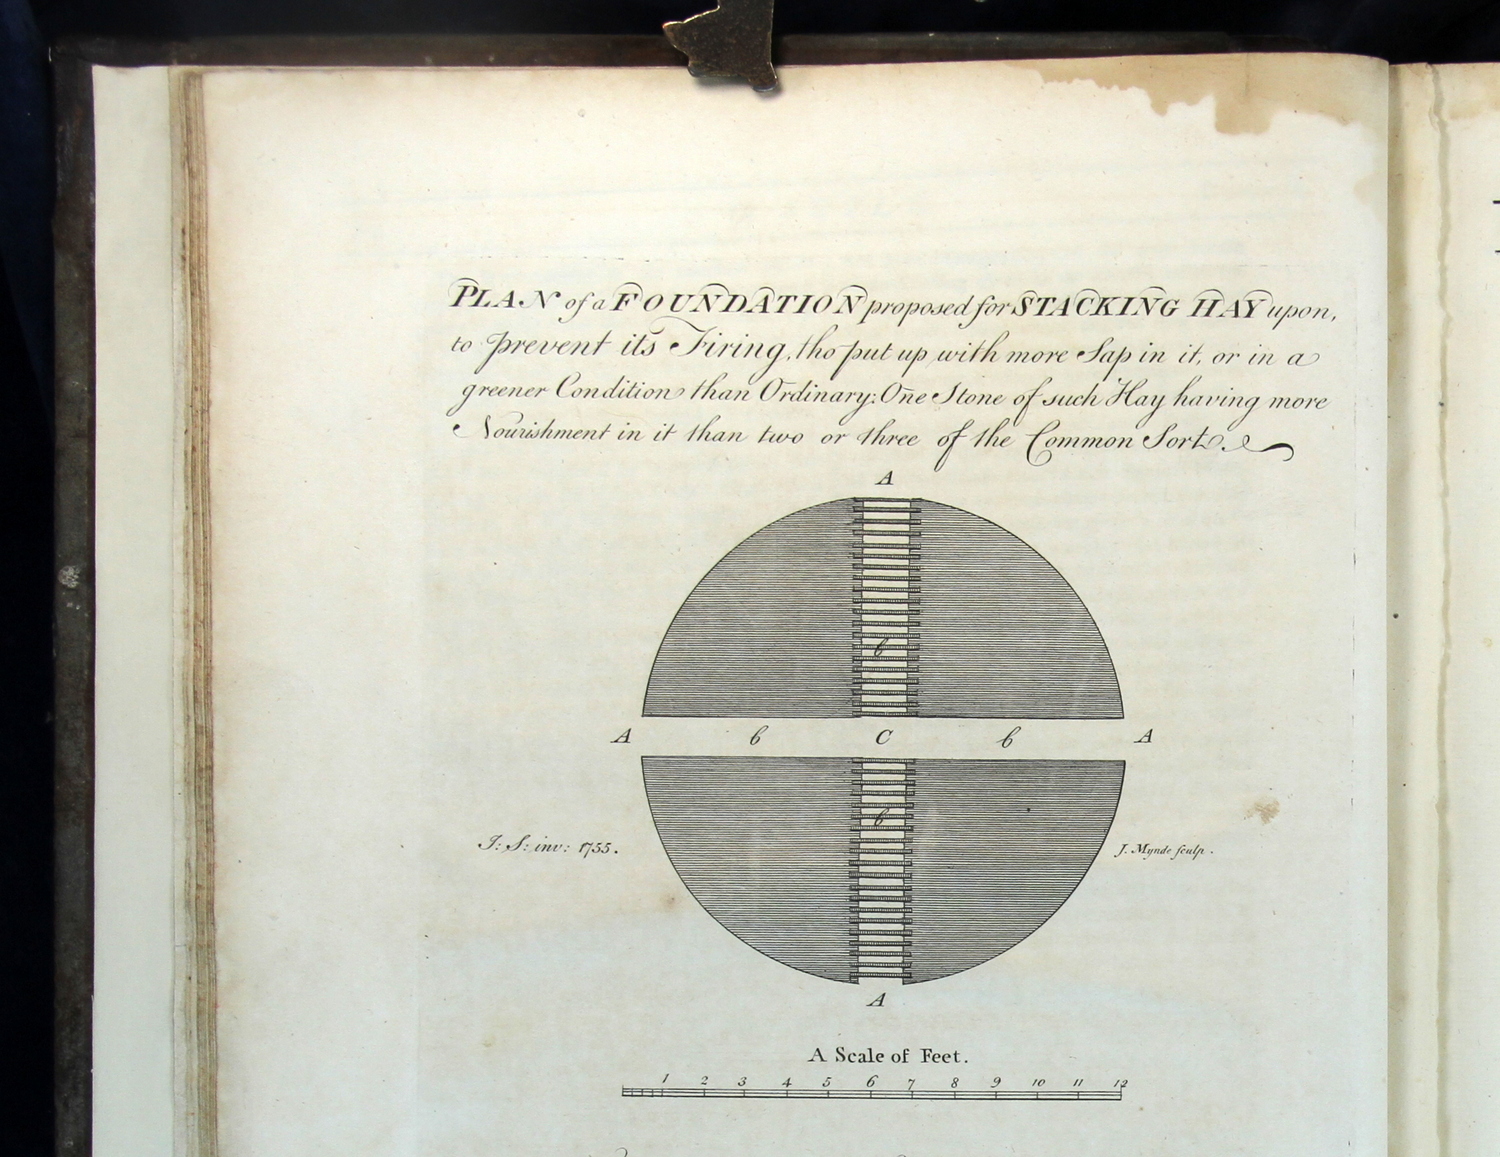 PLAN of a FOUNDATION proposed for STACKING HAY upon,
to prevent its Firing, tho put up with more Sap in it, or in a
greener Condition than Ordinary: One Stone of such Hay having more
Nourishment in it than two or three of the Common Sort.
A
b
A b C b A
b
J: S: inv: 1755. J. Mynde sculp.
A
A Scale of Feet.
1 2 3 4 5 6 7 8 9 10 11 12